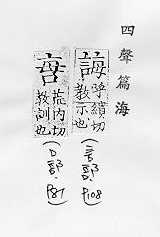 四聲篇海
誨 呼繢切
教示也
(言部, P108)
𠧩 荒内切
教訓也
(口部, P87)